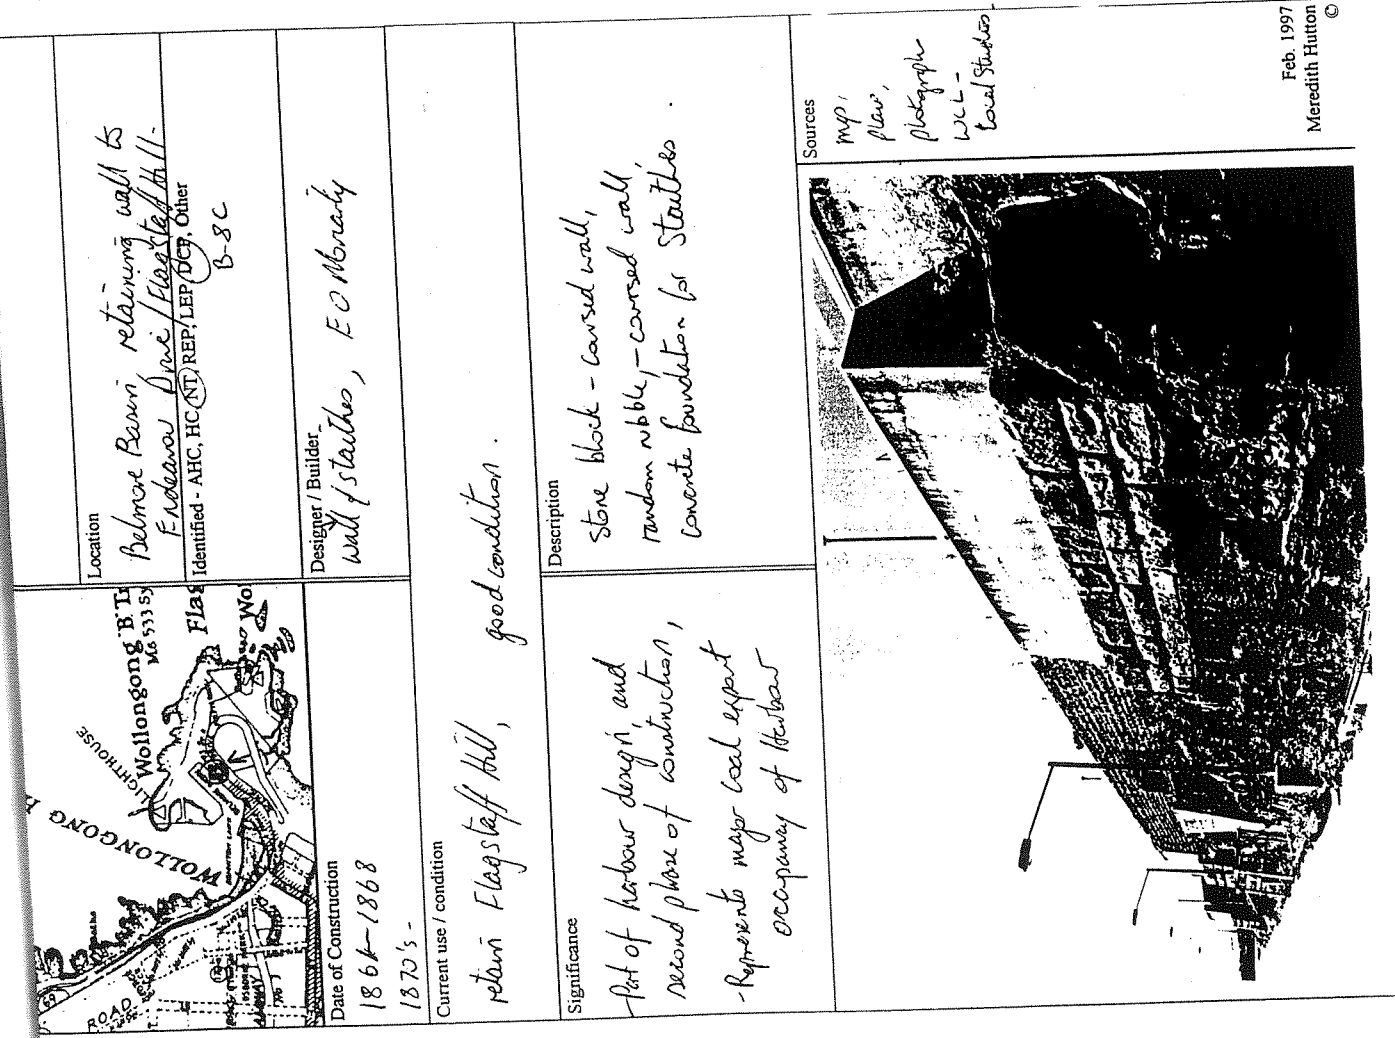 LIGHTHOUSE
Wollongong B. Tr
Me 533 Sy
Flag
Wo
WOLLONGONG H
ROAD
69
Location
Belmore Basin, retaining wall to
Endeavour Drive/Flagstaff Hill.
Identified - AHC, HC, NT, REP, LEP, DCP, Other
B-8C
Date of Construction
1864-1868
1870's -
Designer / Builder
wall/staithes, E O Moriarty
Current use / condition
retain Flagstaff Hill, good condition.
Significance
-Part of harbour design, and
second phase of construction,
-Represents major coal export
occupancy of Harbour
Description
Stone block - coursed wall,
random rubble, - coursed wall,
concrete foundation for Staithes.
Sources
map,
plan,
photograph
WCL -
Local Studies -
Feb. 1997
Meredith Hutton
©